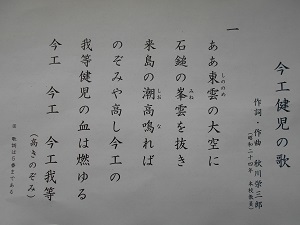 今工健児の歌
作詞・作曲 秋川栄三郎
(昭和二十四年 本校教員)
一
ああ東雲の大空に
しののめ
石鎚の峯雲を抜き
みね
来島の潮高鳴れば
しお な
のぞみや高し今工の
我等健児の血は燃ゆる
今工 今工 今工我等
(高きのぞみ)
※ 歌詞は5番まである